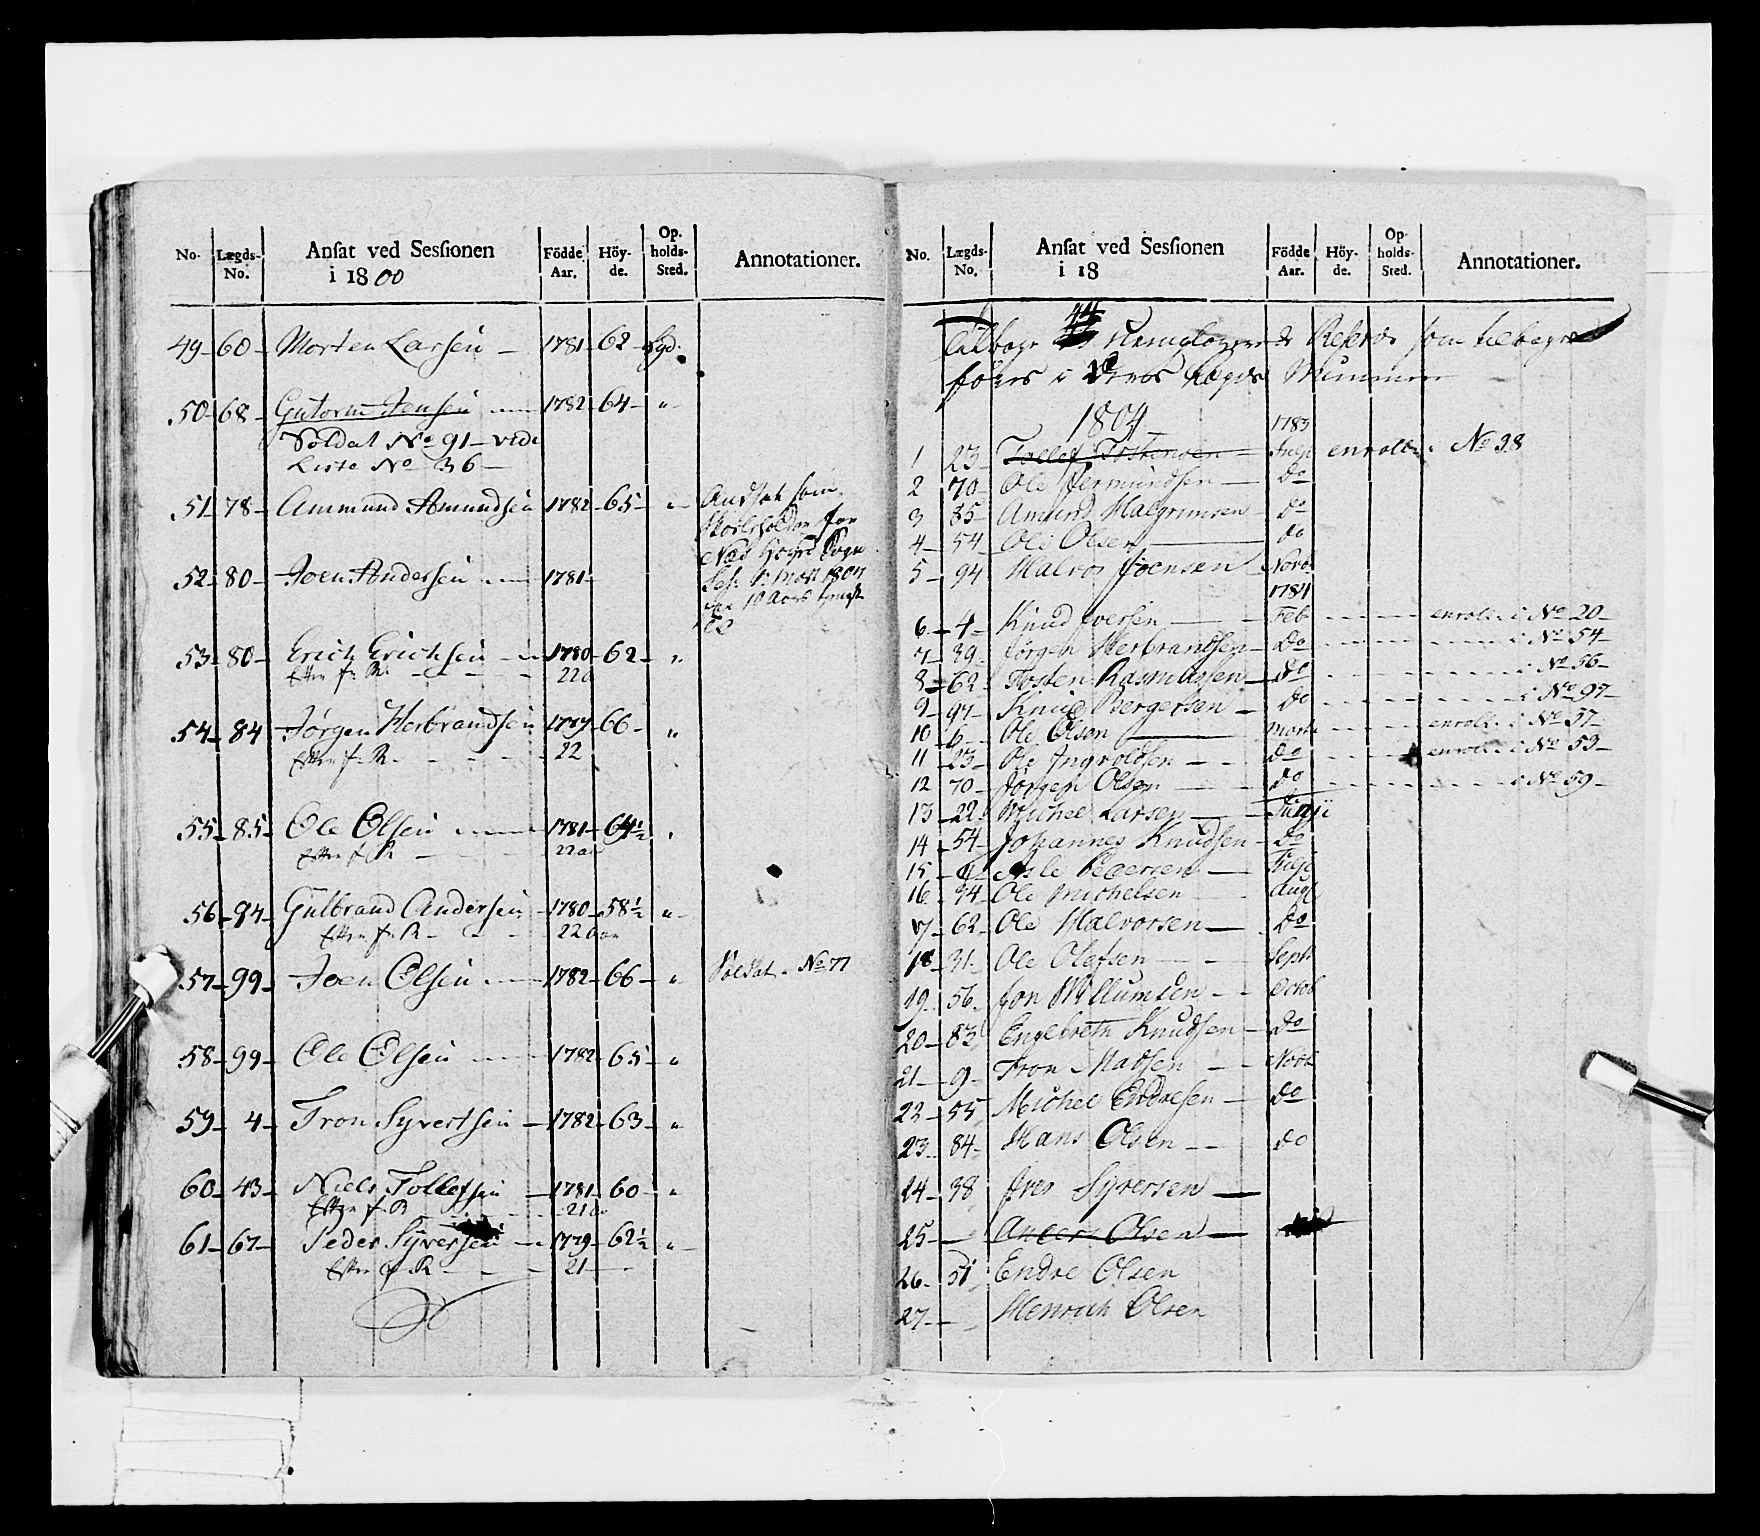 No. Lægds-No. Ansat ved Sessionen i 1800 Födde Aar. Höy-de. Op-holds-Sted. Annotationer.
49 - 60 - Morten Larsen - 1781 - 62 - Hyd:
50 - 68 - Gutorm Jensen 1782 - 64 - "
Soldat No 91 - vide
Liste No 36 -
51 - 78 - Ammund Amundsen 1782 - 65 - " Andsat som
Skoleholder for
52 - 80 - Joen Andersen 1781 -
53 - 80 - Erich Erichsen 1780 - 62 - "
Efter f. R. 22
54 - 84 Jørgen Herbrandsen 1777 - 66 - "
Efter f. R. 22
55 - 85 - Ole Olsen 1781 - 64 1/2 "
Efter f. R 22
56 - 94 - Gulbrand Andersen - 1780 - 58 1/2 "
Efter f. R 22 Aar
57 - 99 - Joen Olsen 1782 - 66 - " Soldat No 77
58 - 99 - Ole Olsen 1782 - 65 - "
59 - 4 - Tron Syvertsen - 1782 - 63 - "
60 - 43 - Niels Tollefsen - 1781 - 60 - "
Efter f. R 21
61 - 67 - Peder Syversen - 1779 - 62 1/2 "
Efter f. R 21
No. Lægds-No. Ansat ved Sessionen i 18 Födde Aar. Höy-de. Op-holds-Sted. Annotationer.
føres i Deres Lægds Nummere
1804
1783
1 23 - Tollef Tostensen - enroll. No 38
2 70 - Ole Jermundsen - Do
3 85 - Amund Halgrimsen - Do
4 - 54 - Ole Olsen - Do
5 - 94 Halvor Joensen Novb
1784
6 - 4 - Knud Iversen - Feb - enroll. i No 20 -
7 - 39 - Jørgen Herbrandsen - Do - i No 54 -
8 - 62 - Tosten Rasmussen - Do - i No 56 -
9 - 97 - Knud Bergersen - Do - i No 97 -
10 - 6 - Ole Olsen - Marti - enroll. i No 57 -
11 - 23 - Ole Ingvoldsen - Do - enroll. i No 53 -
12 70 - Jørgen Olsen Do - i No 59 -
13 - 22 - Michel Larsen - Junii
14 - 54 - Johannes Knudsen - Do
15 Asle Pedersen -
16 - 94 - Ole Michelsen Aug
17 - 62 - Ole Halvorsen - Do
18 - 31 - Ole Olefsen - Septb
19 - 56 - Jon Willumsen - Octob
20 - 83 Engebreth Knudsen - Do
21 - 9 - Tron Madsen - Novb
22 - 55 - Michel Endresen - Do
23 - 84 - Hans Olsen - Do
24 - 38 Iver Syversen -
25 - Anders Olsen -
26 - 51 Endre Olsen
27 - Henrich Olsen